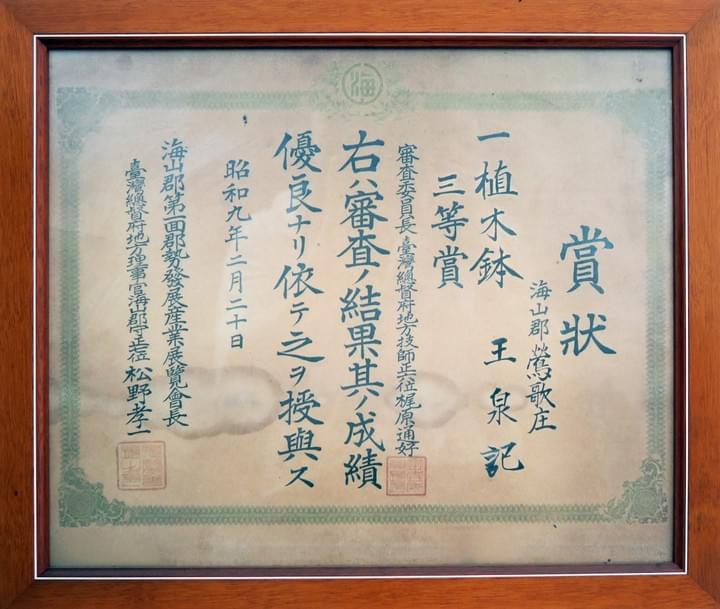 海
賞狀
海山郡鶯歌庄
王泉記
一植木鉢
三等賞
審查委員長臺灣總督府地方技師正七位梶原通好
右ハ審査ノ結果其ノ成績
優良ナリ依テ之ヲ授與ス
昭和九年二月二十日
海山郡第一回郡勢發展產業展覽會長
臺灣總督府地方理事官海山郡守正七位松野孝一